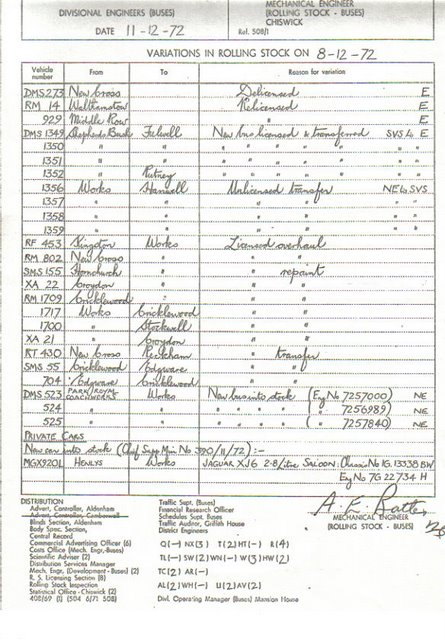 DIVISIONAL ENGINEERS (BUSES)
DATE 11-12-72
MECHANICAL ENGINEER
(ROLLING STOCK - BUSES)
CHISWICK
Ref. 508/1
VARIATIONS IN ROLLING STOCK ON 8-12-72
Vehicle number From To Reason for variation
DMS 273 New Cross Delicensed E
RM 14 Walthamstow Relicensed E
929 Middle Row " E
DMS 1349 Shepherds Bush Fulwell New bus licensed & transferred SVS to E
1350 " " " " " " " "
1351 " " " " " " " "
1352 " Putney " " " " " "
1356 Works Hanwell Unlicensed transfer NE to SVS
1357 " " " " "
1358 " " " " "
1359 " " " " "
RF 453 Kingston Works Licensed overhaul
RM 802 New Cross " " "
SMS 155 Hornchurch " " repaint
XA 22 Croydon " " "
RM 1709 Cricklewood " " "
1717 Works Cricklewood " "
1700 " Stockwell " "
XA 21 " Croydon " "
RT 430 New Cross Peckham " transfer
SMS 55 Cricklewood Edgware " "
704 Edgware Cricklewood " "
DMS 523 PARK/ROYAL COACHWORKS Works New bus into stock (Eng No 7257000) NE
524 " " " " " " (" 7256989) NE
525 " " " " " " (" 7257840) NE
PRIVATE CARS
New car into stock (Chief Supp Min No 390/11/72) :-
MGX920L HENLYS Works JAGUAR XJ6 2·8/litre SALOON. Chassis No 1G.13338 BW
Eng No 7G 22734 H
A. E. Batten
MECHANICAL ENGINEER
(ROLLING STOCK - BUSES)
DISTRIBUTION
Advert. Controller, Aldenham
Advert. Controller, Camberwell
Blinds Section, Aldenham
Body Spec. Section,
Central Record
Commercial Advertising Officer (6)
Costs Office (Mech. Engr.-Buses)
Scientific Adviser (2)
Distribution Services Manager
Mech. Engr. (Development - Buses) (2)
R. S. Licensing Section (8)
Rolling Stock Inspection
Statistical Office - Chiswick (2)
408/69 (1) (504 6/71 508)
Traffic Supt. (Buses)
Financial Research Officer
Schedules Supt. Buses
Traffic Auditor, Griffith House
District Engineers
Q(-) NX(3) T(2) HT(-) R(4)
TL(-) SW(2) WN(-) W(3) HW(2)
TC(2) AR(-)
AL(2) WH(-) U(2) AV(2)
Divl. Operating Manager (Buses) Mansion House